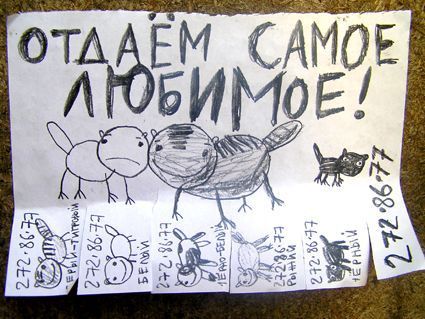 ОТДАЁМ САМОЕ
ЛЮБИМОЕ!
272·86·77
272·86·77
БЕЛЫЙ
272·86·77
272·86·77
РЫЖИЙ
272·86·77
272·86·77